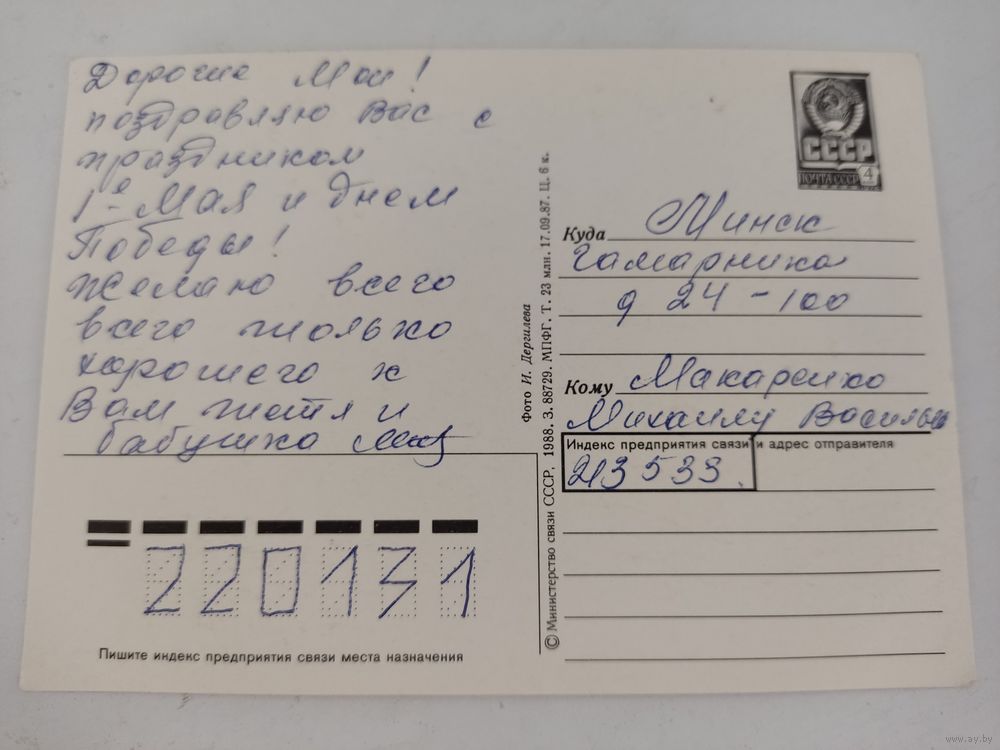 Дорогие Мои!
поздравляю Вас с
праздником
1е Мая и днем
Победы!
Желаю всего
всего только
хорошего к
Вам тетя и
бабушка
Пишите индекс предприятия связи места назначения
220131
© Министерство связи СССР, 1988. З. 88729. МПФГ. Т. 23 млн. 17.09.87. Ц. 6 к.
Фото И. Дергилева
СССР
ПОЧТА СССР 4
Куда Минск
Гамарника
д 24 - 100
Кому Макаренко
Михаилу Василь
Индекс предприятия связи и адрес отправителя
213533
www.ay.by